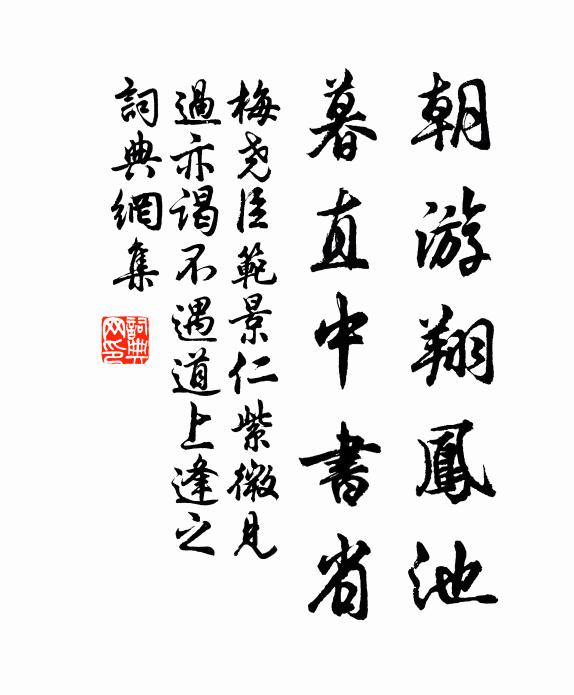 朝游翔鳳池
暮直中書省
梅堯臣範景仁紫微見
過亦謁不遇道上逢之
詞典網集
詞典
网印